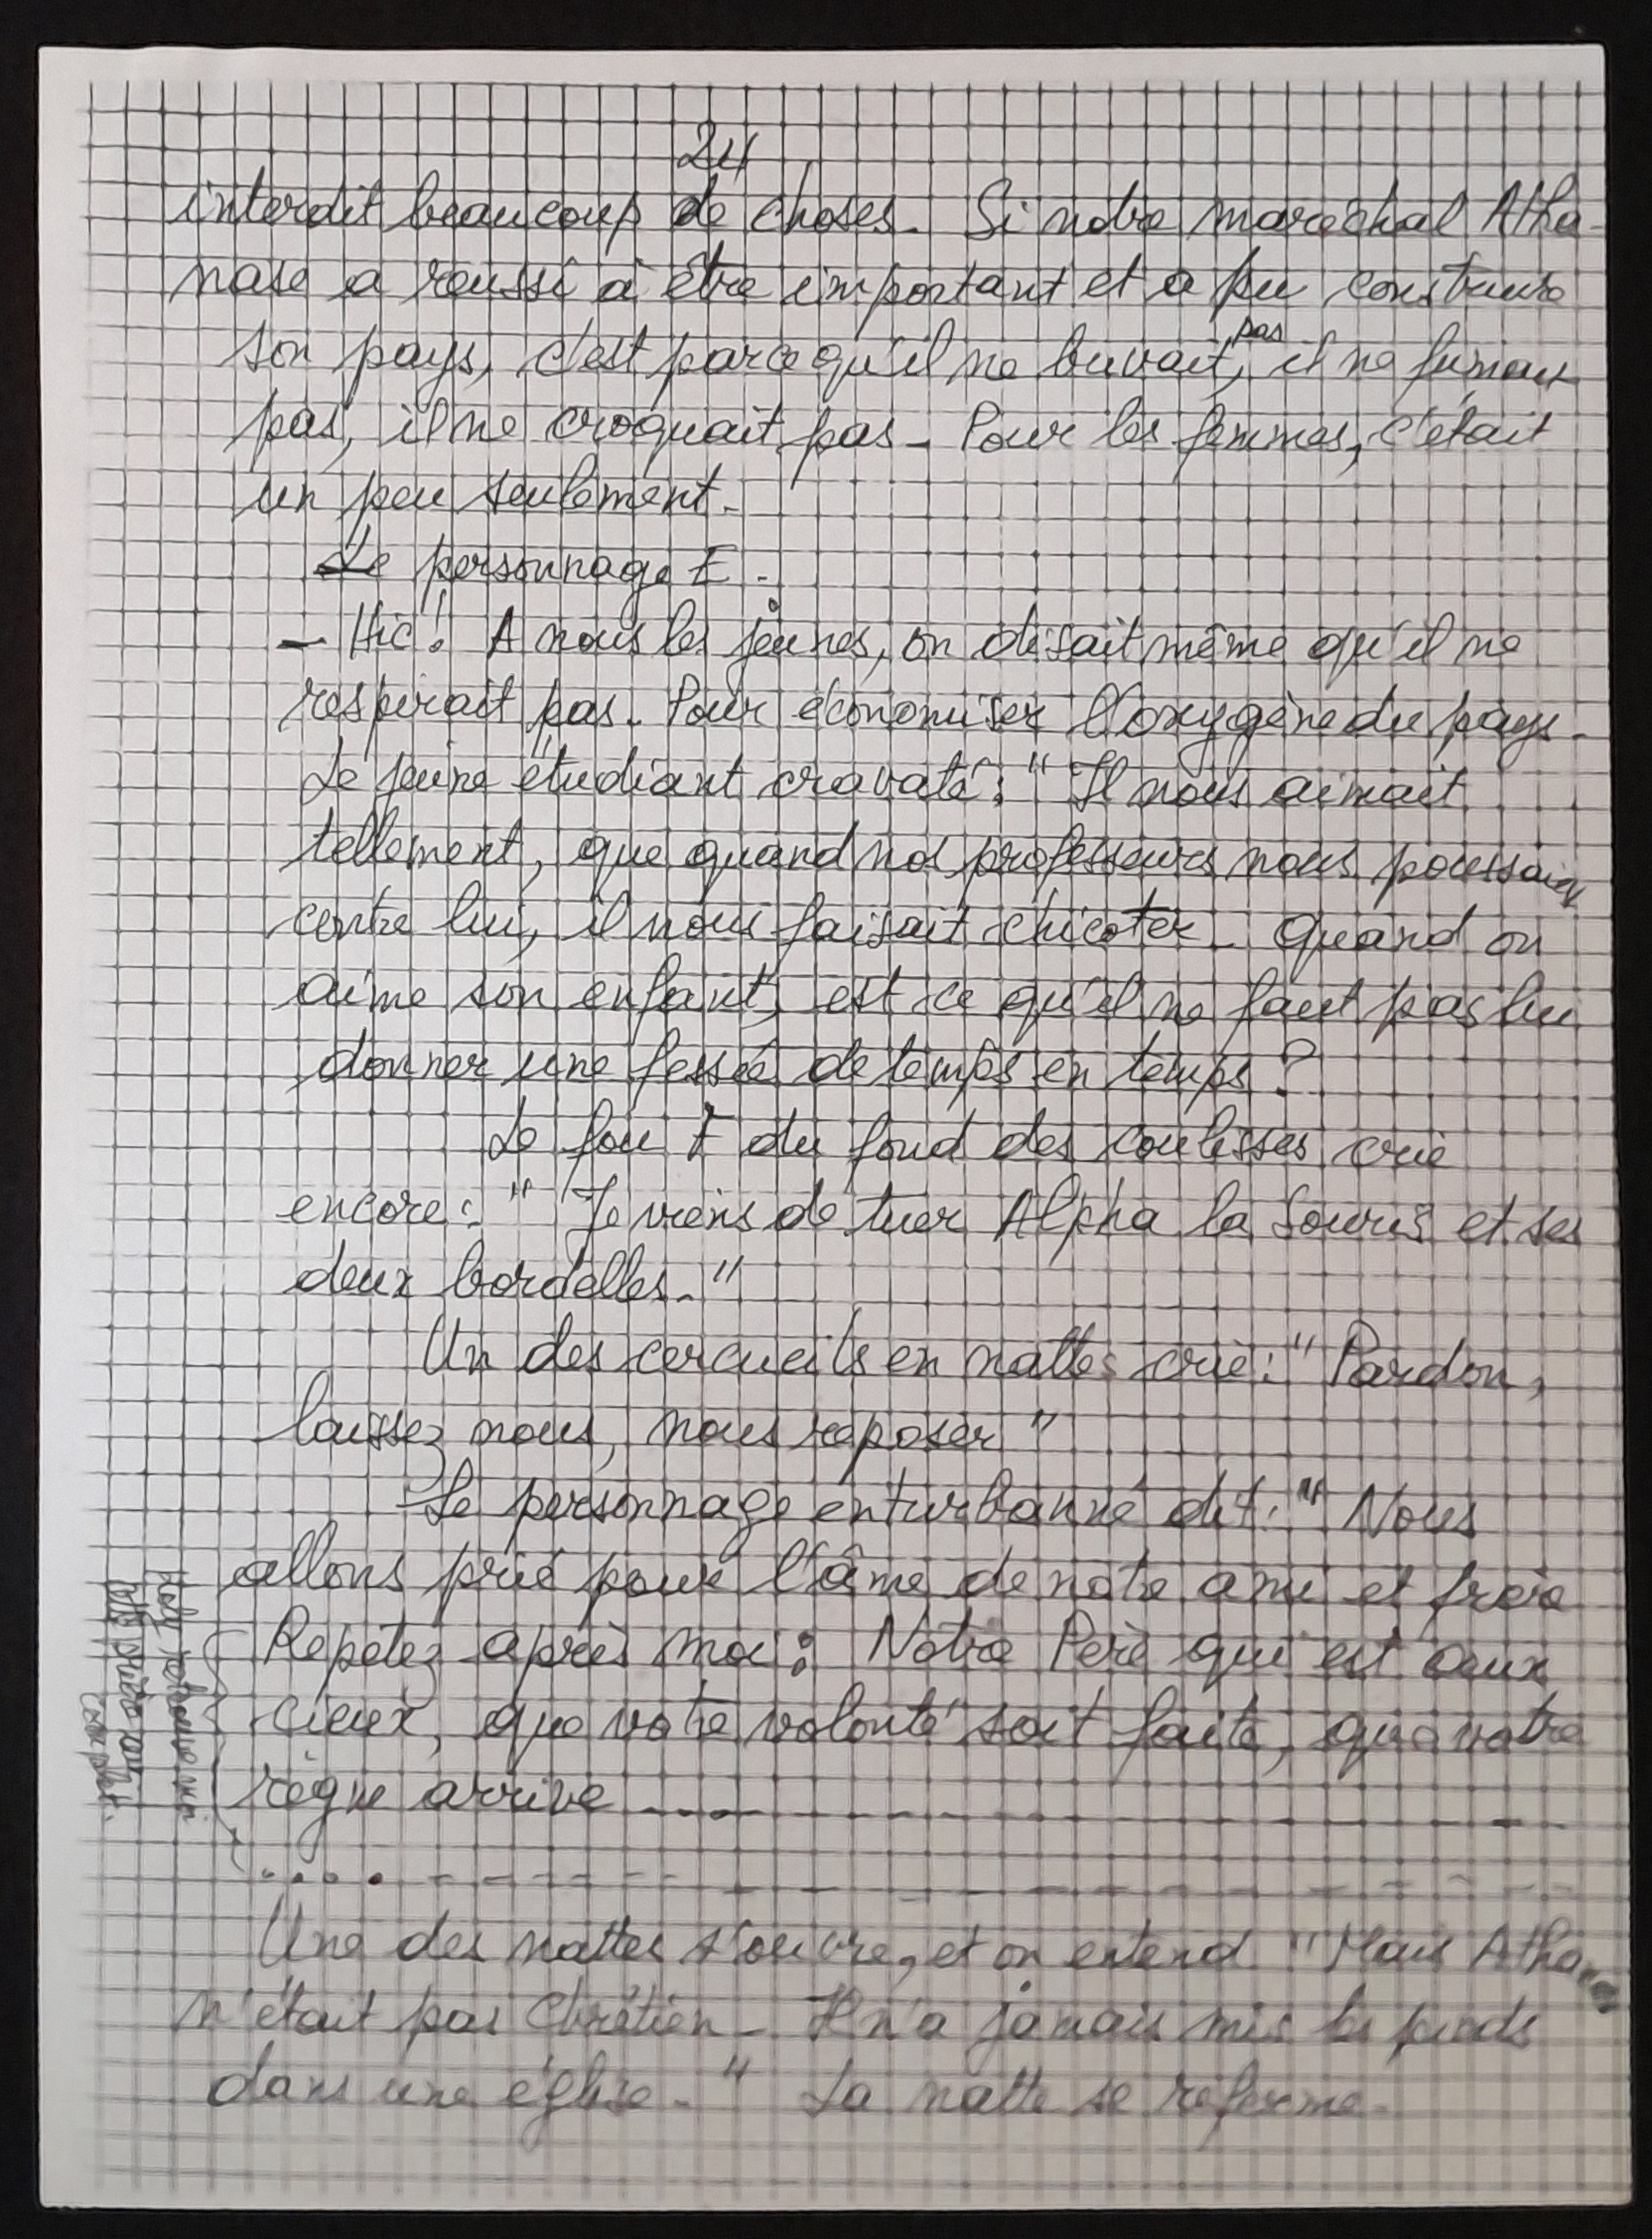 24
interdit beaucoup de choses. Si notre maréchal Atha-
nase a reussi à être important et a pu construire
son pays, c'est parce qu'il ne buvait pas, il ne fumait
pas, il ne croquait pas. Pour les femmes, c'était
un peu seulement.
Le personnage E.
- Hic! A nous les jeunes, on disait même qu'il ne
respirait pas. Pour économiser l'oxygène du pays.
Le jeune étudiant cravaté: " Il nous aimait
tellement, que quand nos professeurs nous poussaient
contre lui, il nous faisait chicoter. Quand on
aime son enfant, est ce qu'il ne faut pas lui
donner une fessée de temps en temps?
Le fou E du fond des coulisses crie
encore: " Je viens de tuer Alpha la Souris et ses
deux bordelles."
Un des cercueils en nattes crie: " Pardon,
laissez nous, nous reposer "
Le personnage enturbanné dit: " Nous
allons prié pour l'âme de notre ami et frère
Repétez après moi: Notre Père qui est aux
cieux, que votre volonté soit faite, que votre
règne arrive ....
....
Une des nattes s'ouvre, et on entend " Mais Athanase
n'était pas Chrétien. Il n'a jamais mis les pieds
dans une église. " La natte se referme.